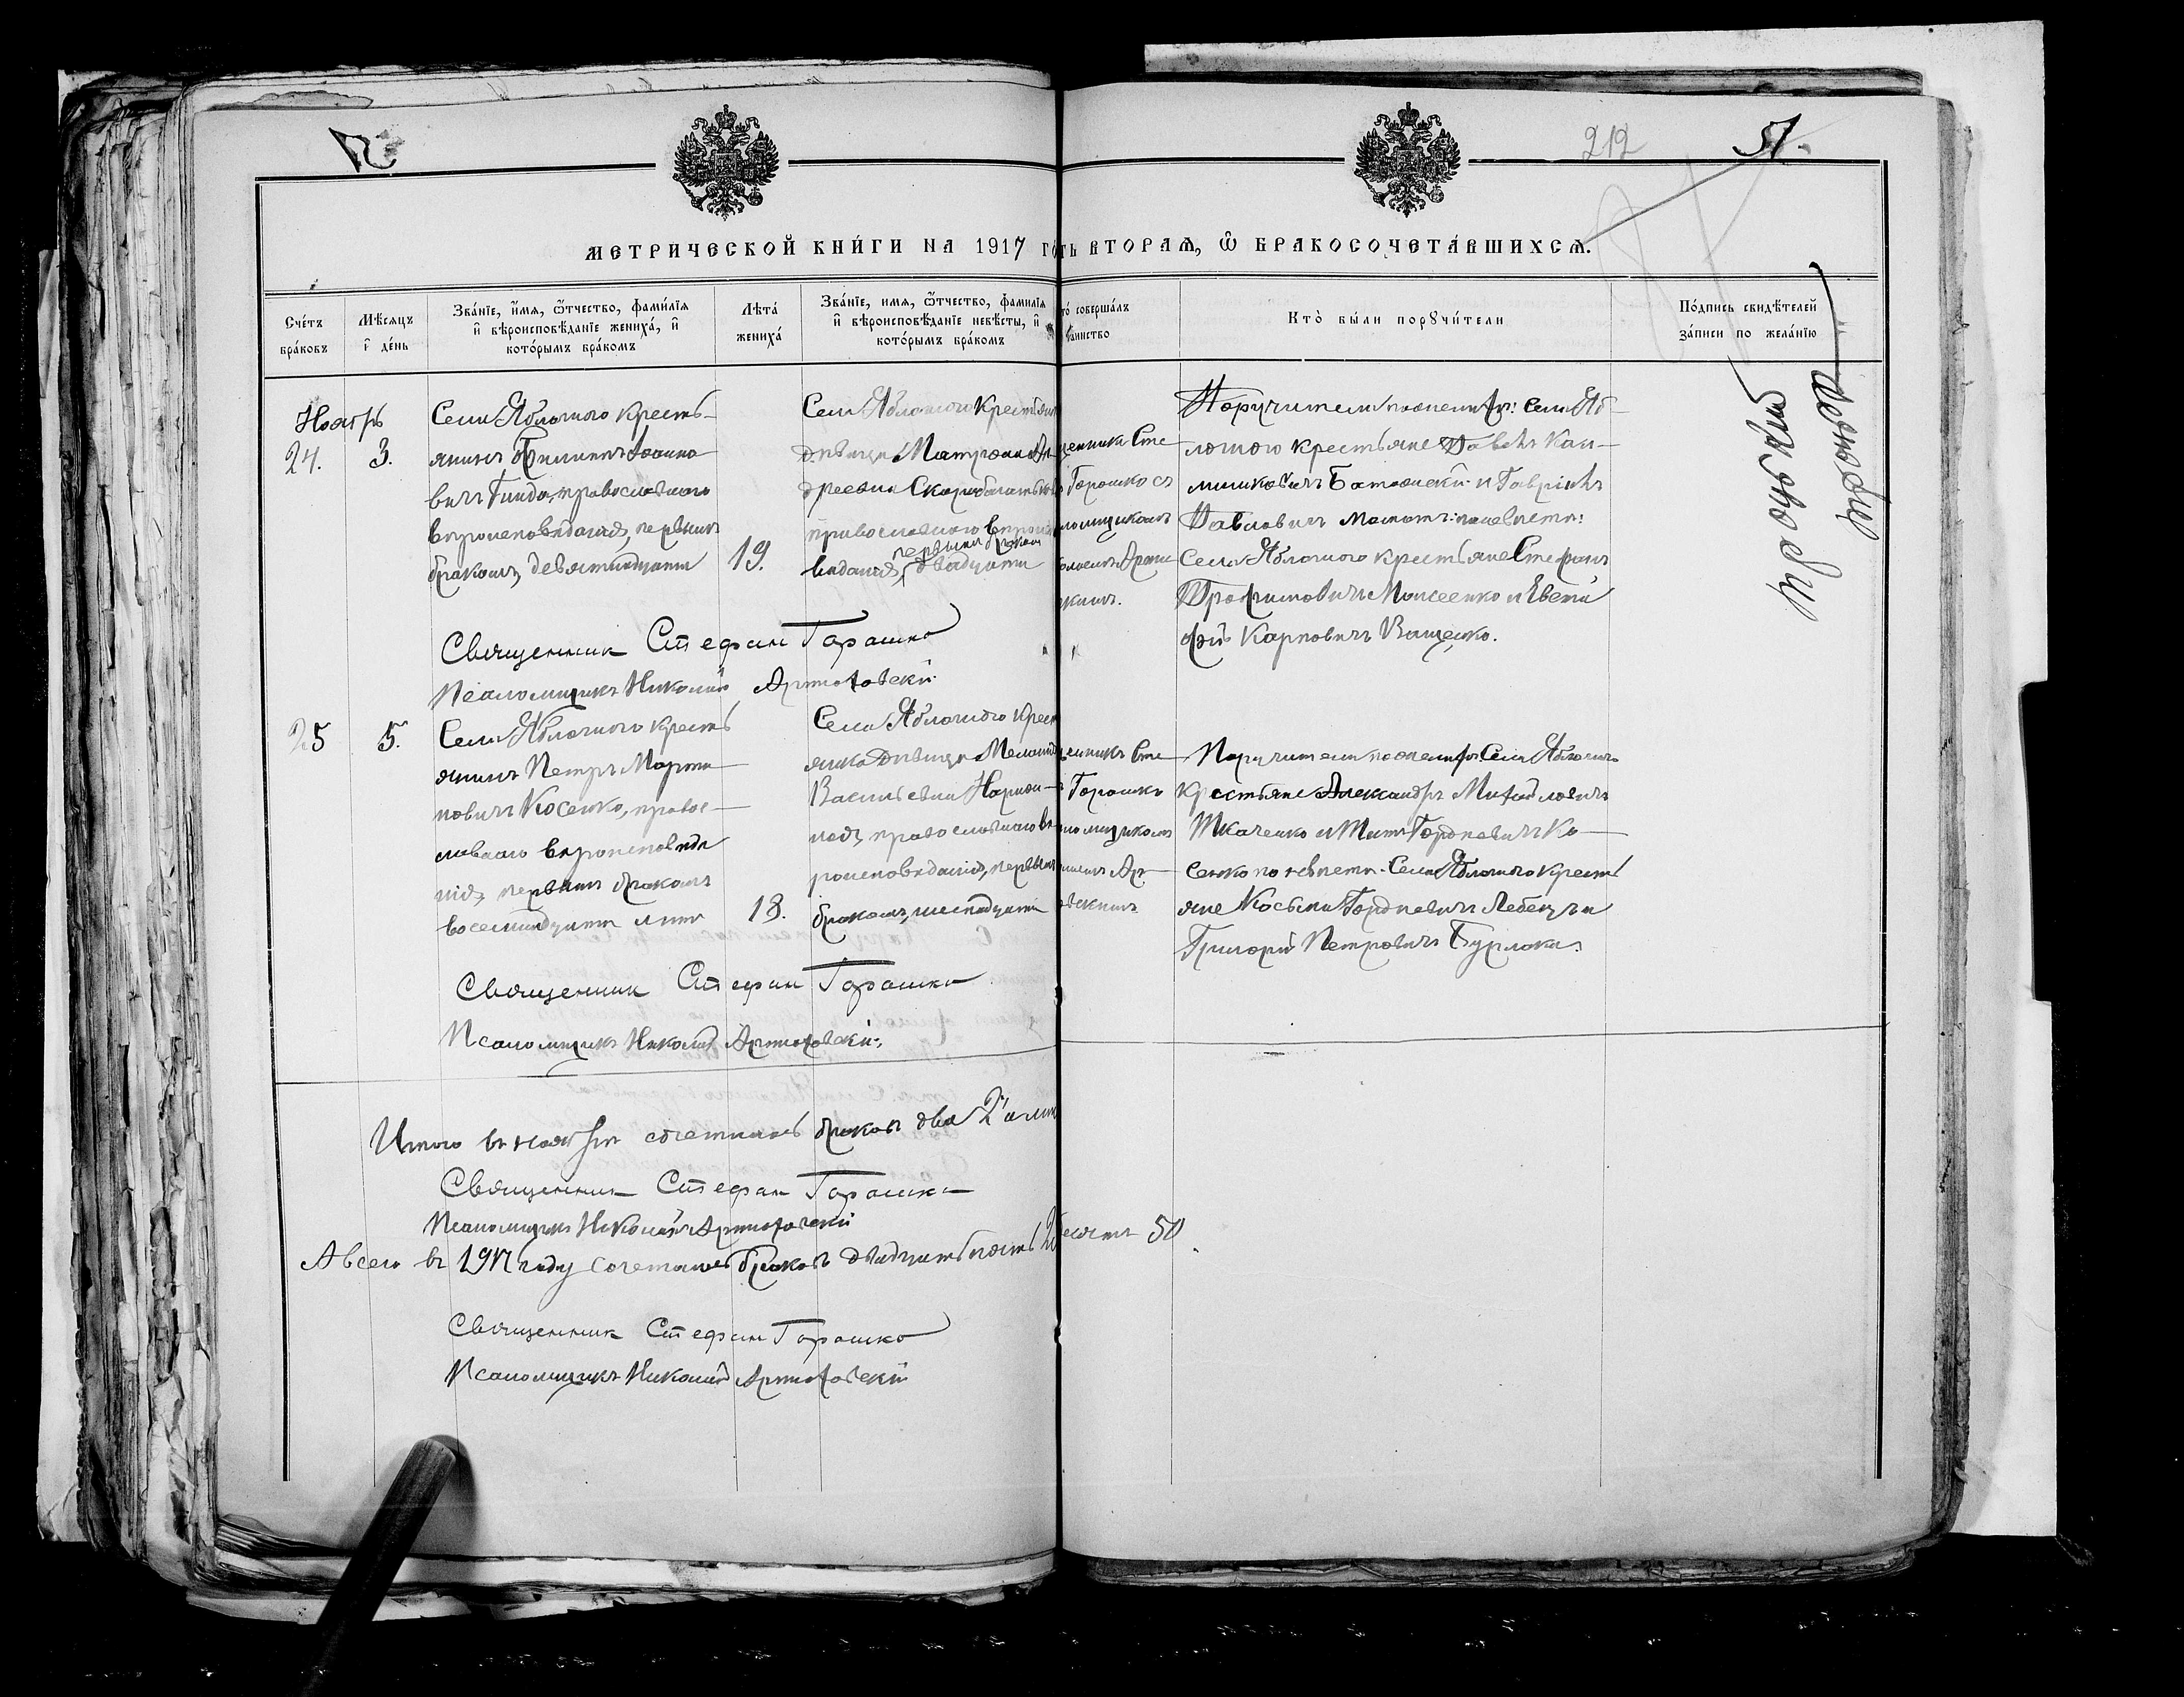 212
51.
МЕТРИЧЕСКОЙ КНИ́ГИ НА 1917 ГО
ТЬ ВТОРАѦ, Ѡ҆ БРАКОСОЧЕТА́ВШИХСѦ.
Сче́тъ бра́ковъ
Мѣ́сяцъ и҆ де́нь
Зва́нїе, и҆́мѧ, ѻ҆́тчество, фами́лїѧ и҆ вѣроисповѣ́данїе жениха́, и҆ кото́рымъ бра́комъ
Лѣта́ жениха́
Зва́нїе, имѧ, ѻ҆́тчество, фамилїѧ и҆ вѣроисповѣ́данїе невѣ́сты, и҆ кото́рымъ бра́комъ
то́ соверша́лъ та́инство
Кто̀ бы́ли порꙋчи́тели
По́дпись свидѣ́телей за́писи по жела́нїю
Ноябрь
24.
3.
Села Яблочного кресть-
янинъ Филиппъ Іоанно-
вичъ Гнида, православнаго
вѣроисповѣданія, первымъ
бракомъ, девятнадцати
19.
Села Яблочного крестьян
дѣвица Матрона Ан-
дреевна
православного вѣроиспо
вѣданія, первымъ бракомъ двадцати
щенникъ Сте
Горошко съ
ломщикомъ
Поручители по женихѣ: Села Яб-
лочного крестьяне Павелъ
и Гавріилъ
Павловичъ по невѣстѣ:
Села Яблочного крестьяне Стефанъ
Трофимовичъ Моисеенко и Евсти
фій Карповичъ Ващенко.
Священник Стефан Горошко
Псаломщикъ Николай Артюховскій
25
5.
Села Яблочного кресть
янинъ Петръ Марти-
новичъ Косенко, правос-
лавнаго вѣроисповѣда
нія, первымъ бракомъ
восемнадцати лѣтъ
18.
Села Яблочного крест
янка дѣвица
Васильевна
православнаго вѣ
роисповѣданія, первымъ
бракомъ,
щенникъ Сте
Горошко
ломщикомъ
Поручители по женихѣ: Села Яблочного
крестьяне Александръ Михайловичъ
Ткаченко и Титъ Гордѣевичъ Ко-
сенко по невѣстѣ: Села Яблочного кресть
яне Косьма Гордѣевичъ Лебедь и
Григорій Петровичъ Бурлака.
Священник Стефан Горошко
Псаломщикъ Николай Артюховскій.
Итого въ ноябрѣ сочеталось браковъ два 2
Священник Стефан Горошко
Псаломщикъ Николай Артюховскій
А всего въ 1917 году сочеталось браковъ двадцать пять
50
Священник Стефан Горошко
Псаломщикъ Николай Артюховскій